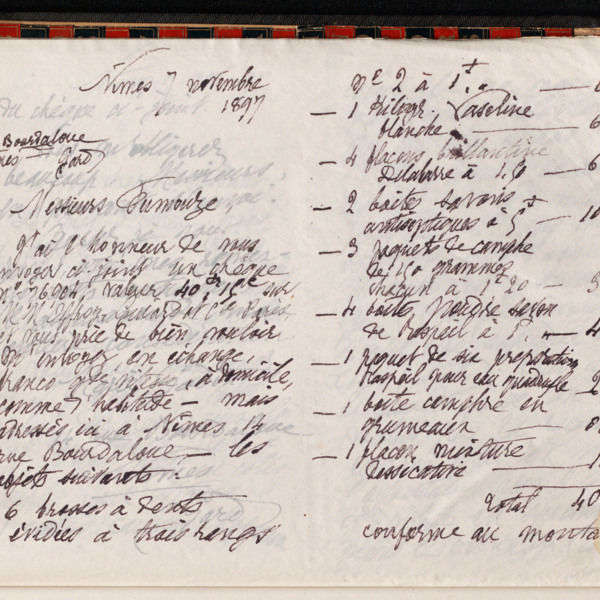 Nîmes 7 novembre
1897
Bourdaloue
Gard
Messieurs Dumouze
J'ai l'honneur de vous
envoyer ci-joint un chèque
n° 76904 valeur 40 15 sur
et vous prie de bien vouloir
m'envoyer en échange,
franco à domicile,
comme d'habitude – mais
adressés ici à Nîmes 13
rue Bourdaloue – les
objets suivants :
6 brosses à dents
évidées à trois rangs
n° 2 à 1
– 1 Kilogr. Vaseline
blanche 6
– 4 flacons brillantine
Delabarre à 1.50 – 6
– 2 boîtes savons
antiseptiques à 5 – 10
– 3 paquets de camphre
de 150 grammes
chacun à 1 20 – 3
– 4 boîtes poudre savon
de Raspail à 1 – 4
– 1 paquet de six préparations
Raspail pour eau quadruple 2
– 1 boîte camphre en
grumeaux
– 1 flacon mixture
dessicative
Total 40
conforme au monta